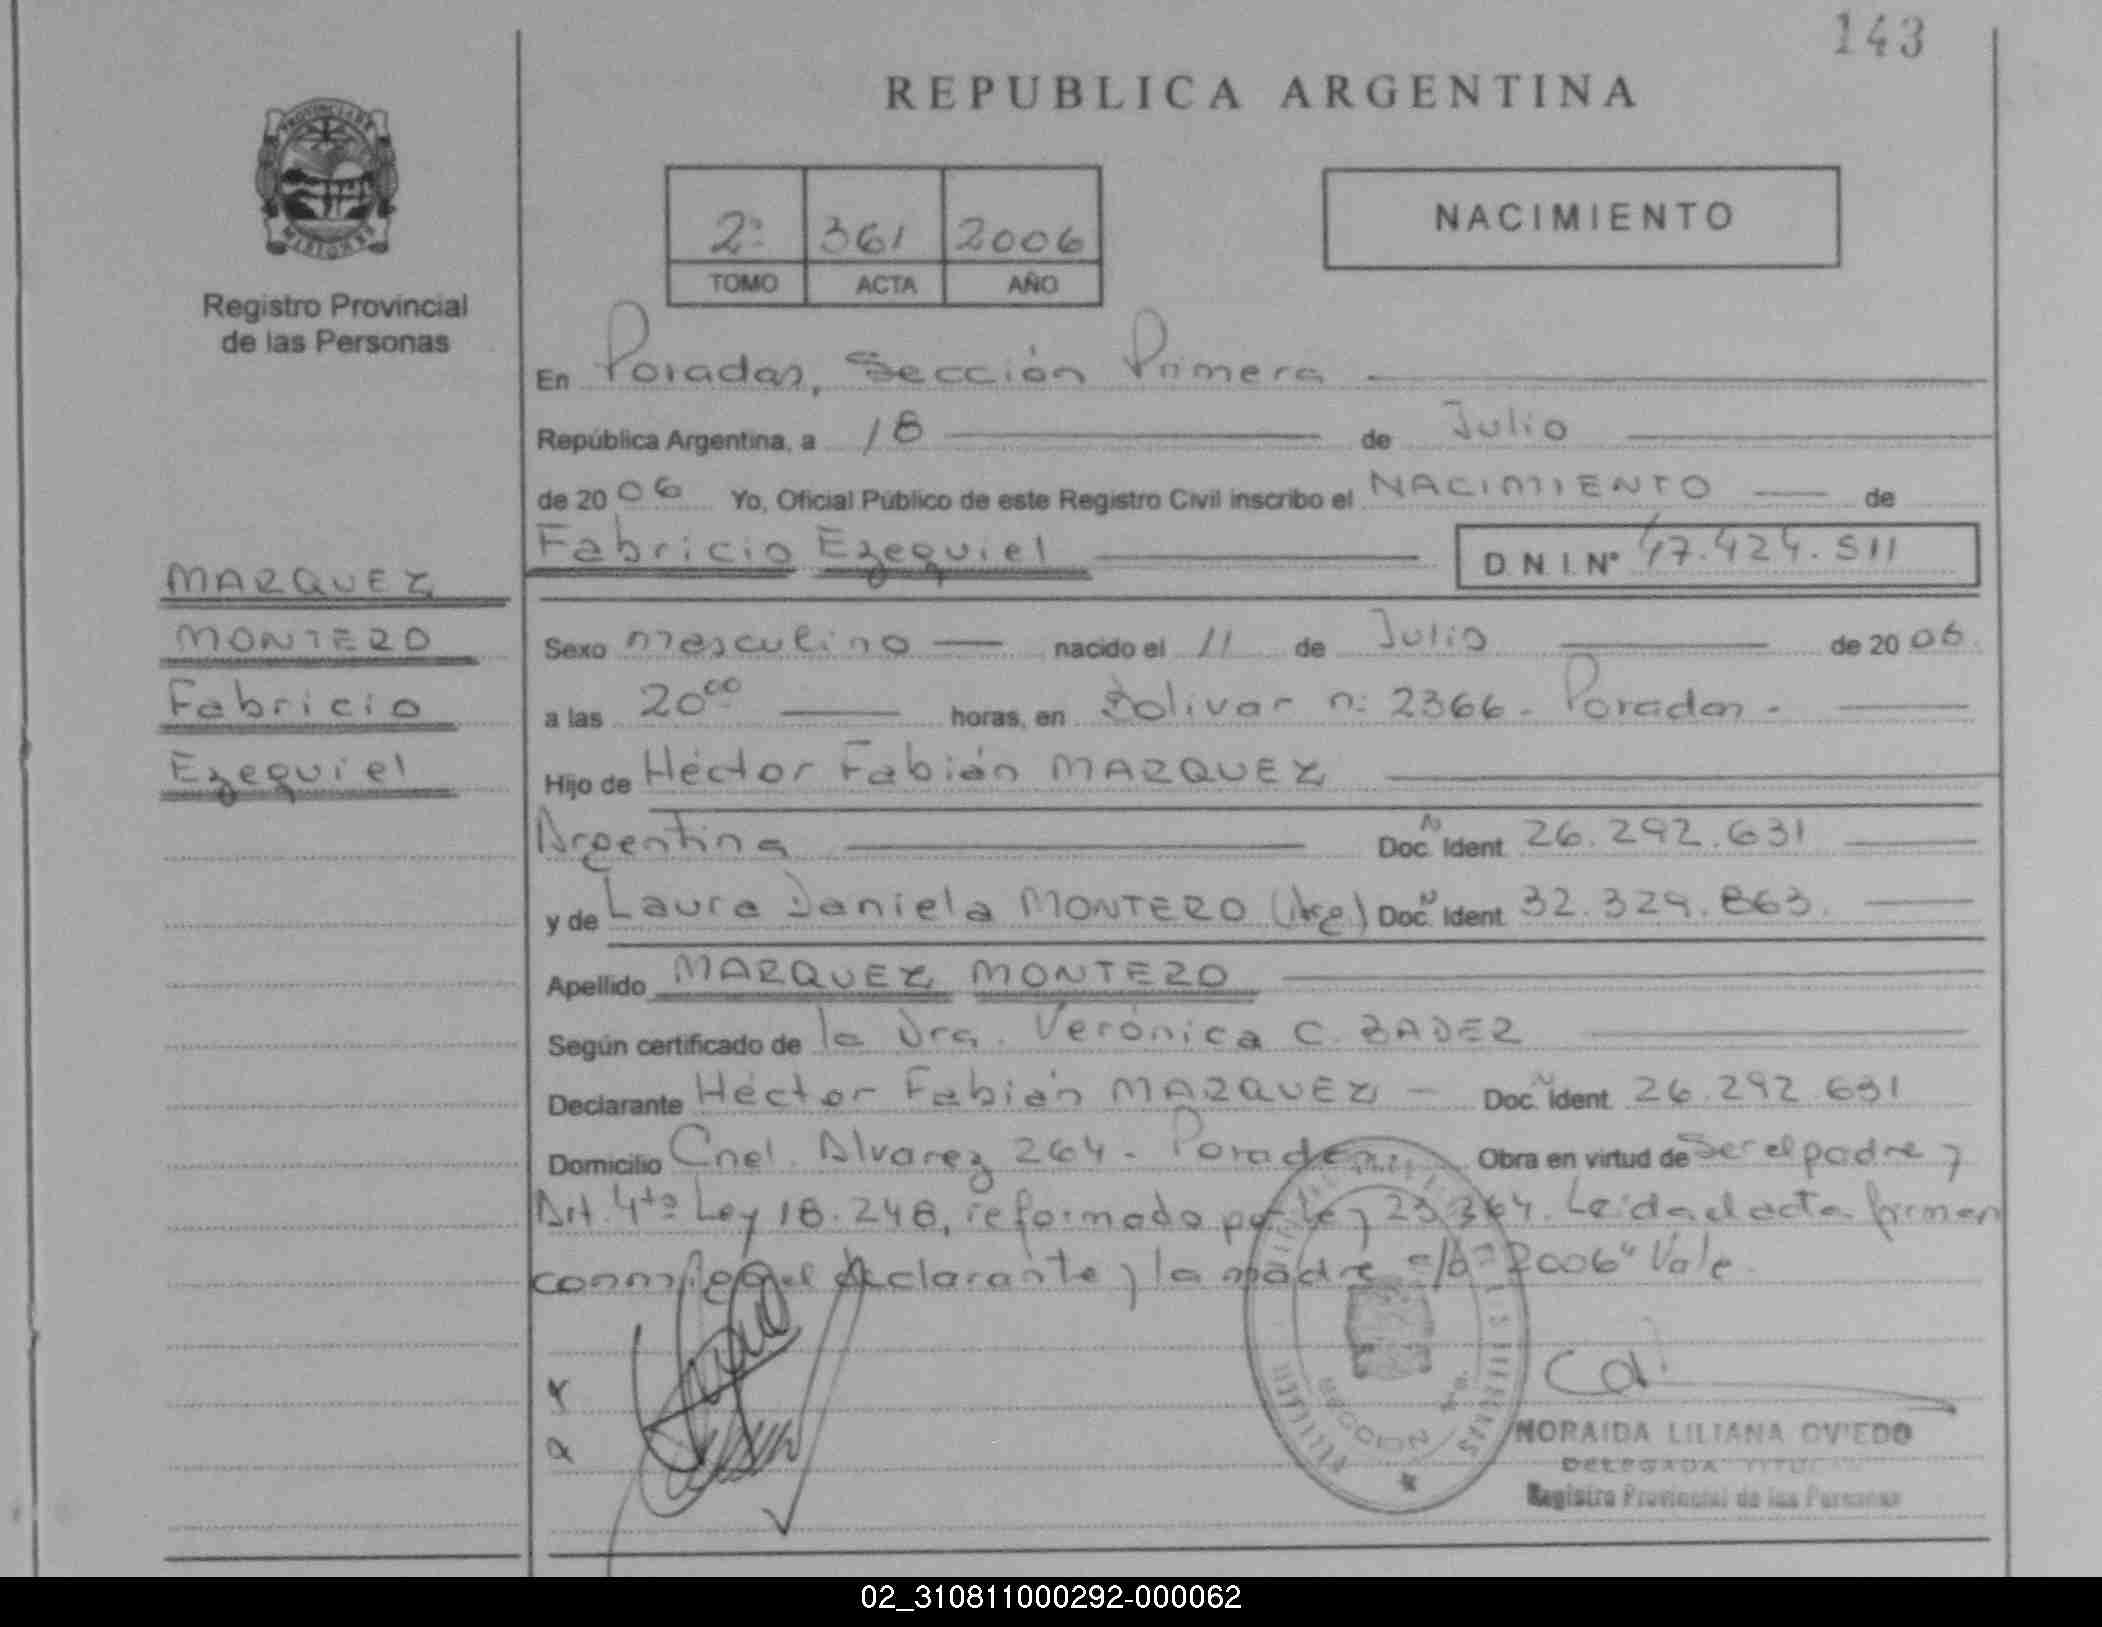 143
REPUBLICA ARGENTINA
2º 361 2006
TOMO ACTA AÑO
NACIMIENTO
PROVINCIA DE
MISIONES
Registro Provincial
de las Personas
En Posadas, Sección Primera
República Argentina, a 18 de Julio
de 2006 Yo, Oficial Público de este Registro Civil inscribo el NACIMIENTO de
Fabricio Ezequiel D.N.I.Nº 47.424.511
MARQUEZ
MONTERO
Fabricio
Ezequiel
Sexo masculino nacido el 11 de Julio de 2006.
a las 20⁰⁰ horas, en Bolivar nº 2366 - Posadas -
Hijo de Héctor Fabián MARQUEZ
Argentina Doc. N Ident. 26.292.631
y de Laura Daniela MONTERO (Arg) Doc. N Ident. 32.329.863.
Apellido MARQUEZ MONTERO
Según certificado de la Dra. Verónica C. BADER
Declarante Héctor Fabián MARQUEZ - Doc. N Ident. 26.292.631
Domicilio Cnel. Alvarez 264 - Posadas Obra en virtud de ser el padre y
Art. 4to Ley 18.248, reformado por Ley 23.264. Leída el acta firman
conmigo el declarante y la madre e/l "2006" Vale.
SECCION 1a.
NORAIDA LILIANA OVIEDO
DELEGADA TITULAR
Registro Provincial de las Personas
02_310811000292-000062